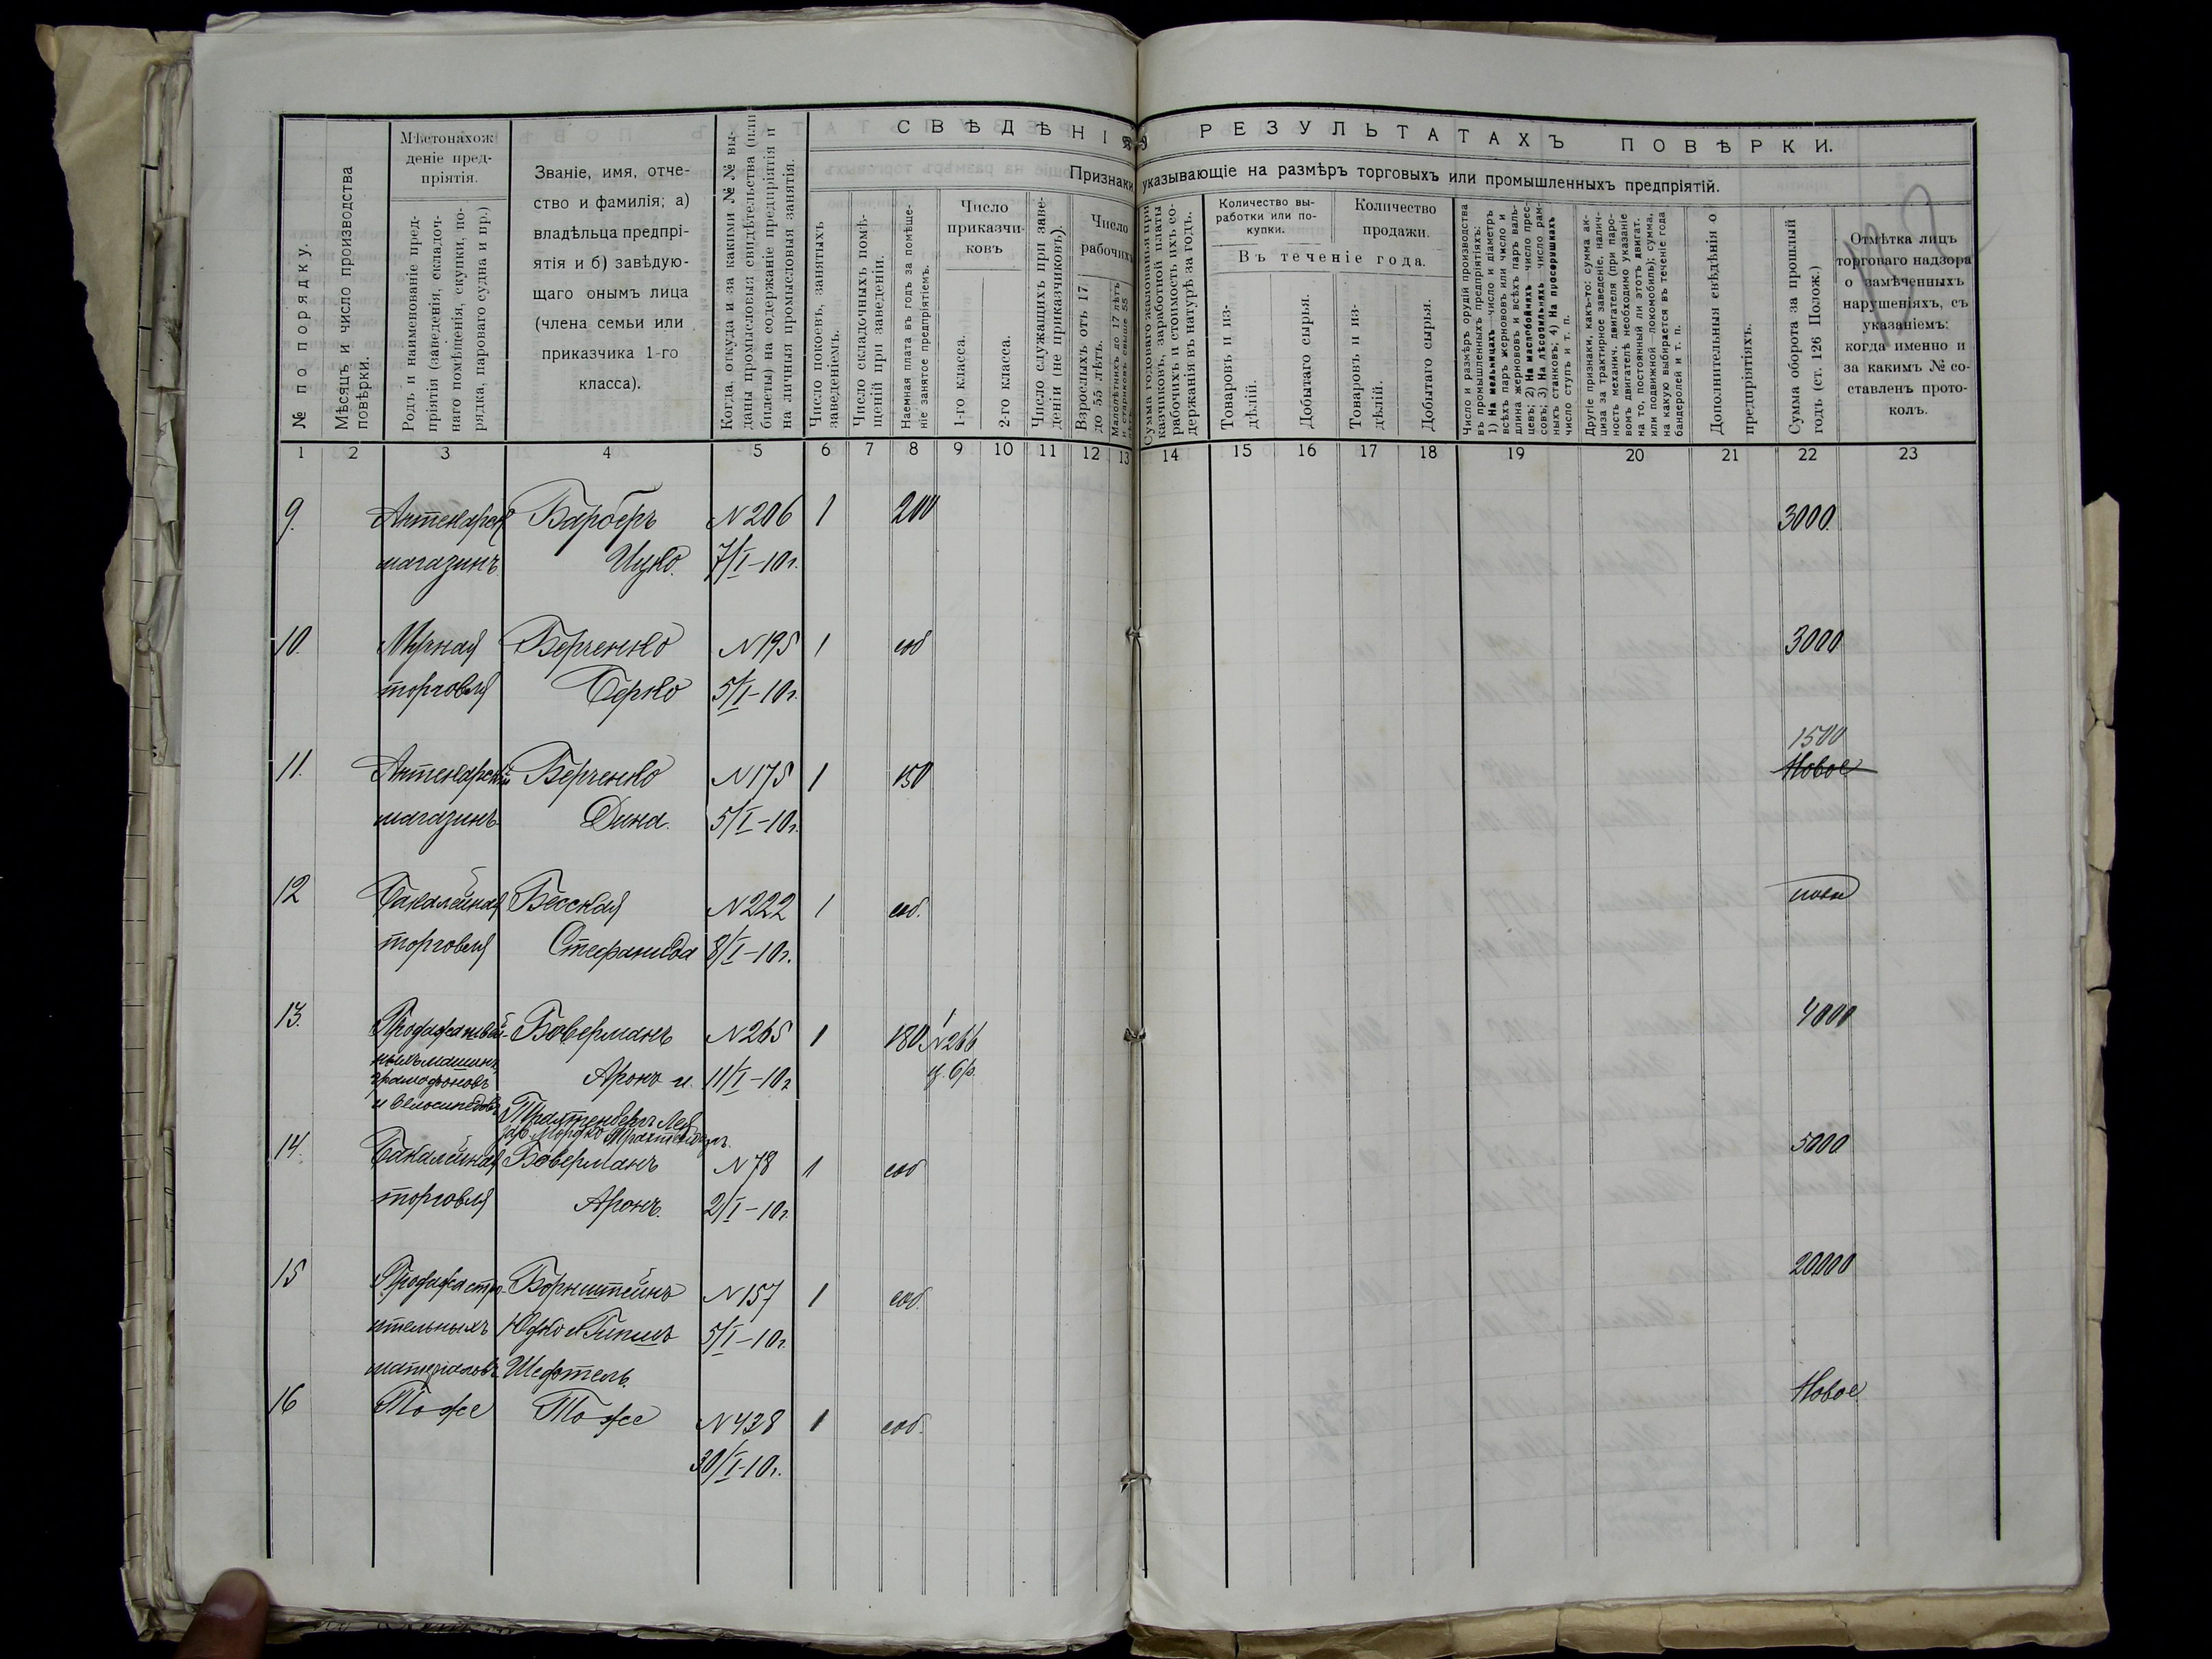 СВѢДѢНІЯ О РЕЗУЛЬТАТАХЪ ПОВѢРКИ.
Признаки, указывающіе на размѣръ торговыхъ или промышленныхъ предпріятій.
№ по порядку.
Мѣсяцъ и число производства
повѣрки.
Мѣстонахож
деніе пред-
пріятія.
Родъ и наименованіе пред-
пріятія (заведенія, складоч-
наго помѣщенія, скупки, по-
рядка, пароваго судна и пр.)
Званіе, имя, отче-
ство и фамилія; а)
владѣльца предпрі-
ятія и б) завѣдую-
щаго онымъ лица
(члена семьи или
приказчика 1-го
класса).
Когда, откуда и за какими №№ вы-
даны промысловыя свидѣтельства (или
билеты) на содержаніе предпріятія и
на личныя промысловыя занятія.
Число покоевъ, занятыхъ
заведеніемъ.
Число складочныхъ помѣ-
щеній при заведеніи.
Наемная плата въ годъ за помѣще-
ніе занятое предпріятіемъ.
Число
приказчи-
ковъ
1-го класса.
2-го класса.
Число служащихъ при заве-
деніи (не приказчиковъ).
Число
рабочихъ
Взрослыхъ отъ 17
до 55 лѣтъ.
Малолѣтнихъ до 17 лѣтъ
и стариковъ свыше 55
Сумма годоваго жалованья при-
казчиковъ, заработной платы
рабочихъ и стоимость ихъ со-
держанія въ натурѣ за годъ.
Количество вы-
работки или по-
купки.
Количество
продажи.
Въ теченіе года.
Товаровъ и из-
дѣлій.
Добытаго сырья.
Товаровъ и из-
дѣлій.
Добытаго сырья.
Число и размѣръ орудій производства
въ промышленныхъ предпріятіяхъ:
1) На мельницахъ—число и діаметръ
всѣхъ паръ жернововъ или число и
длина жернововъ и всѣхъ паръ валь-
цевъ; 2) На маслобойняхъ—число прес-
совъ; 3) На лѣсопильняхъ—число рам-
ныхъ станковъ; 4) На просорушняхъ
число ступъ и т. п.
Другіе признаки, какъ-то: сумма ак-
циза за трактирное заведеніе, налич-
ность механич. двигателя (при паро-
вомъ двигателѣ необходимо указаніе
на то, постоянный ли этотъ двигат.
или подвижной—локомобиль); сумма,
на какую выбирается въ теченіе года
бандеролей и т. п.
Дополнительныя свѣдѣнія о
предпріятіяхъ.
Сумма оборота за прошлый
годъ (ст. 126 Полож.)
Отмѣтка лицъ
торговаго надзора
о замѣченныхъ
нарушеніяхъ, съ
указаніемъ:
когда именно и
за какимъ № со-
ставленъ прото-
колъ.
1 2 3 4 5 6 7 8 9 10 11 12 13 14 15 16 17 18 19 20 21 22 23
9. Аптекарск Барберъ №206 1 200 3000.
магазинъ Ицко. 7/I–10г.
10. Мучная Берченко №195 1 соб 3000
торговля Берко 5/I–10г.
1500
11. Аптекарскій Берченко №175 1 150 Новое
магазинъ Дина. 5/I–10г.
12 Бакалейная Бесская №222 1 соб.
торговля Стефанида 8/I–10г.
13. Продажа швей- Боверманъ №265 1 180 1 №266 4000
ныхъ машинъ, Аронъ и 11/I–10г ц. 6р.
грамофоновъ
и велосипедовъ
14. Бакалейная Боверманъ №78 1 соб 5000
торговля Аронъ. 2/I–10г.
15 Продажа стро- Борнштейнъ №157 1 соб. 20000
ительныхъ Юдко и 5/I–10г.
матеріаловъ
16 Тоже Тоже №438 1 соб. Новое
30/I–10г.